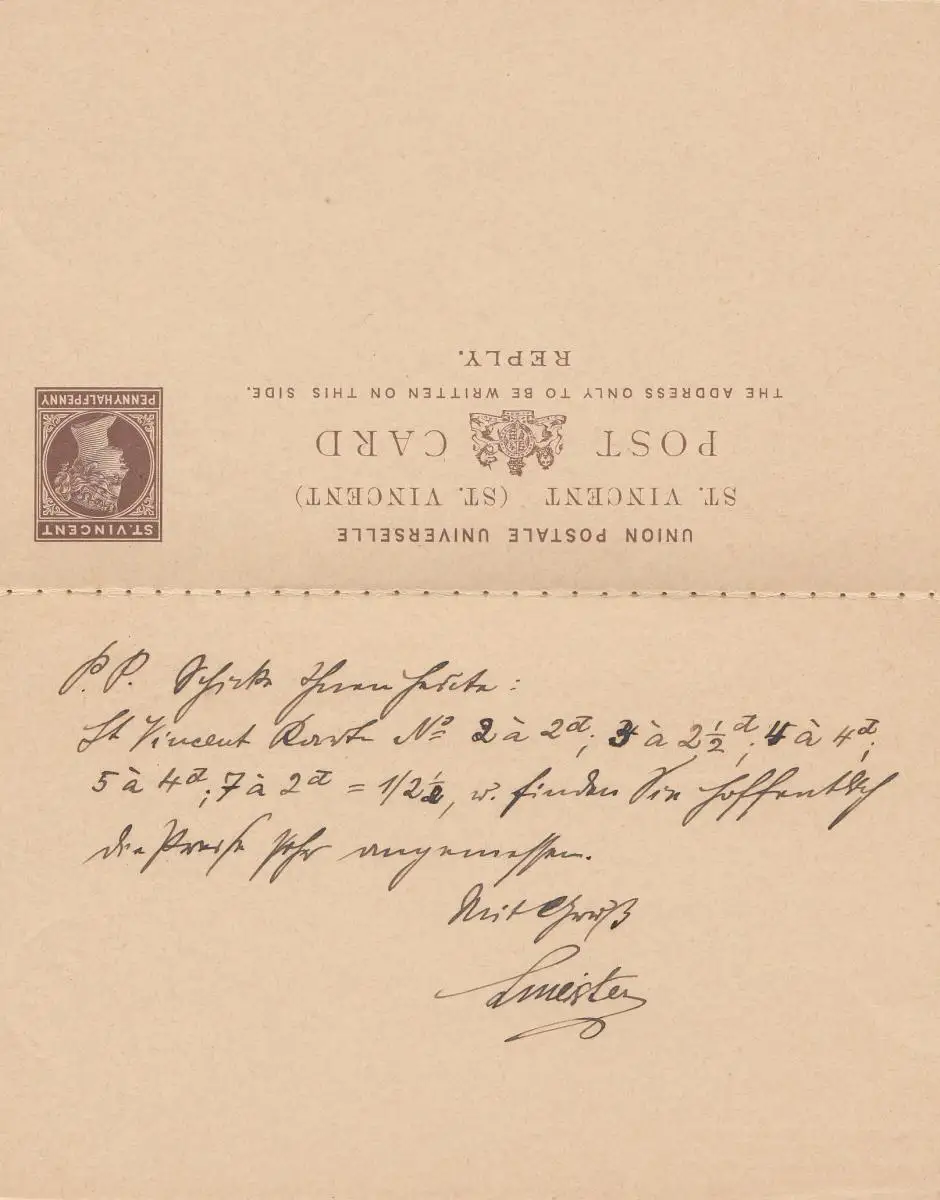 REPLY.
THE ADDRESS ONLY TO BE WRITTEN ON THIS SIDE.
POST CARD
ST. VINCENT (ST. VINCENT)
UNION POSTALE UNIVERSELLE
PENNYHALFPENNY
ST. VINCENT
P.P. Schicke Ihnen heute:
St Vincent Karte No 2 à 2d; 3 à 2½d; 4 à 4d;
5 à 4d; 7 à 2d = 1/2½, u. finden Sie hoffentlich
die Preise sehr angemessen.
Mit Gruß